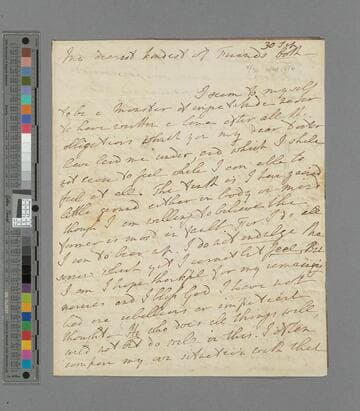 My dearest kindest of Friends both
I seem to myself
to be a Monster of ingratitude never
to have written a line after all the
obligations which you my dear Sister
have laid me under, and which I shall
not cease to feel while I am able to
feel at all. The truth is, I have gained
little ground either in body or mind
though I am willing to believe the
former is most in fault. For I do all
I can to bear up. I do not indulge the
sorrow which yet I cannot but feel. But
I am I hope thankful for my remaining
mercies and I bless God I have not
had one rebellious or impatient
thought. He who does all things well,
could not do in this. I often
compare my own situation with that